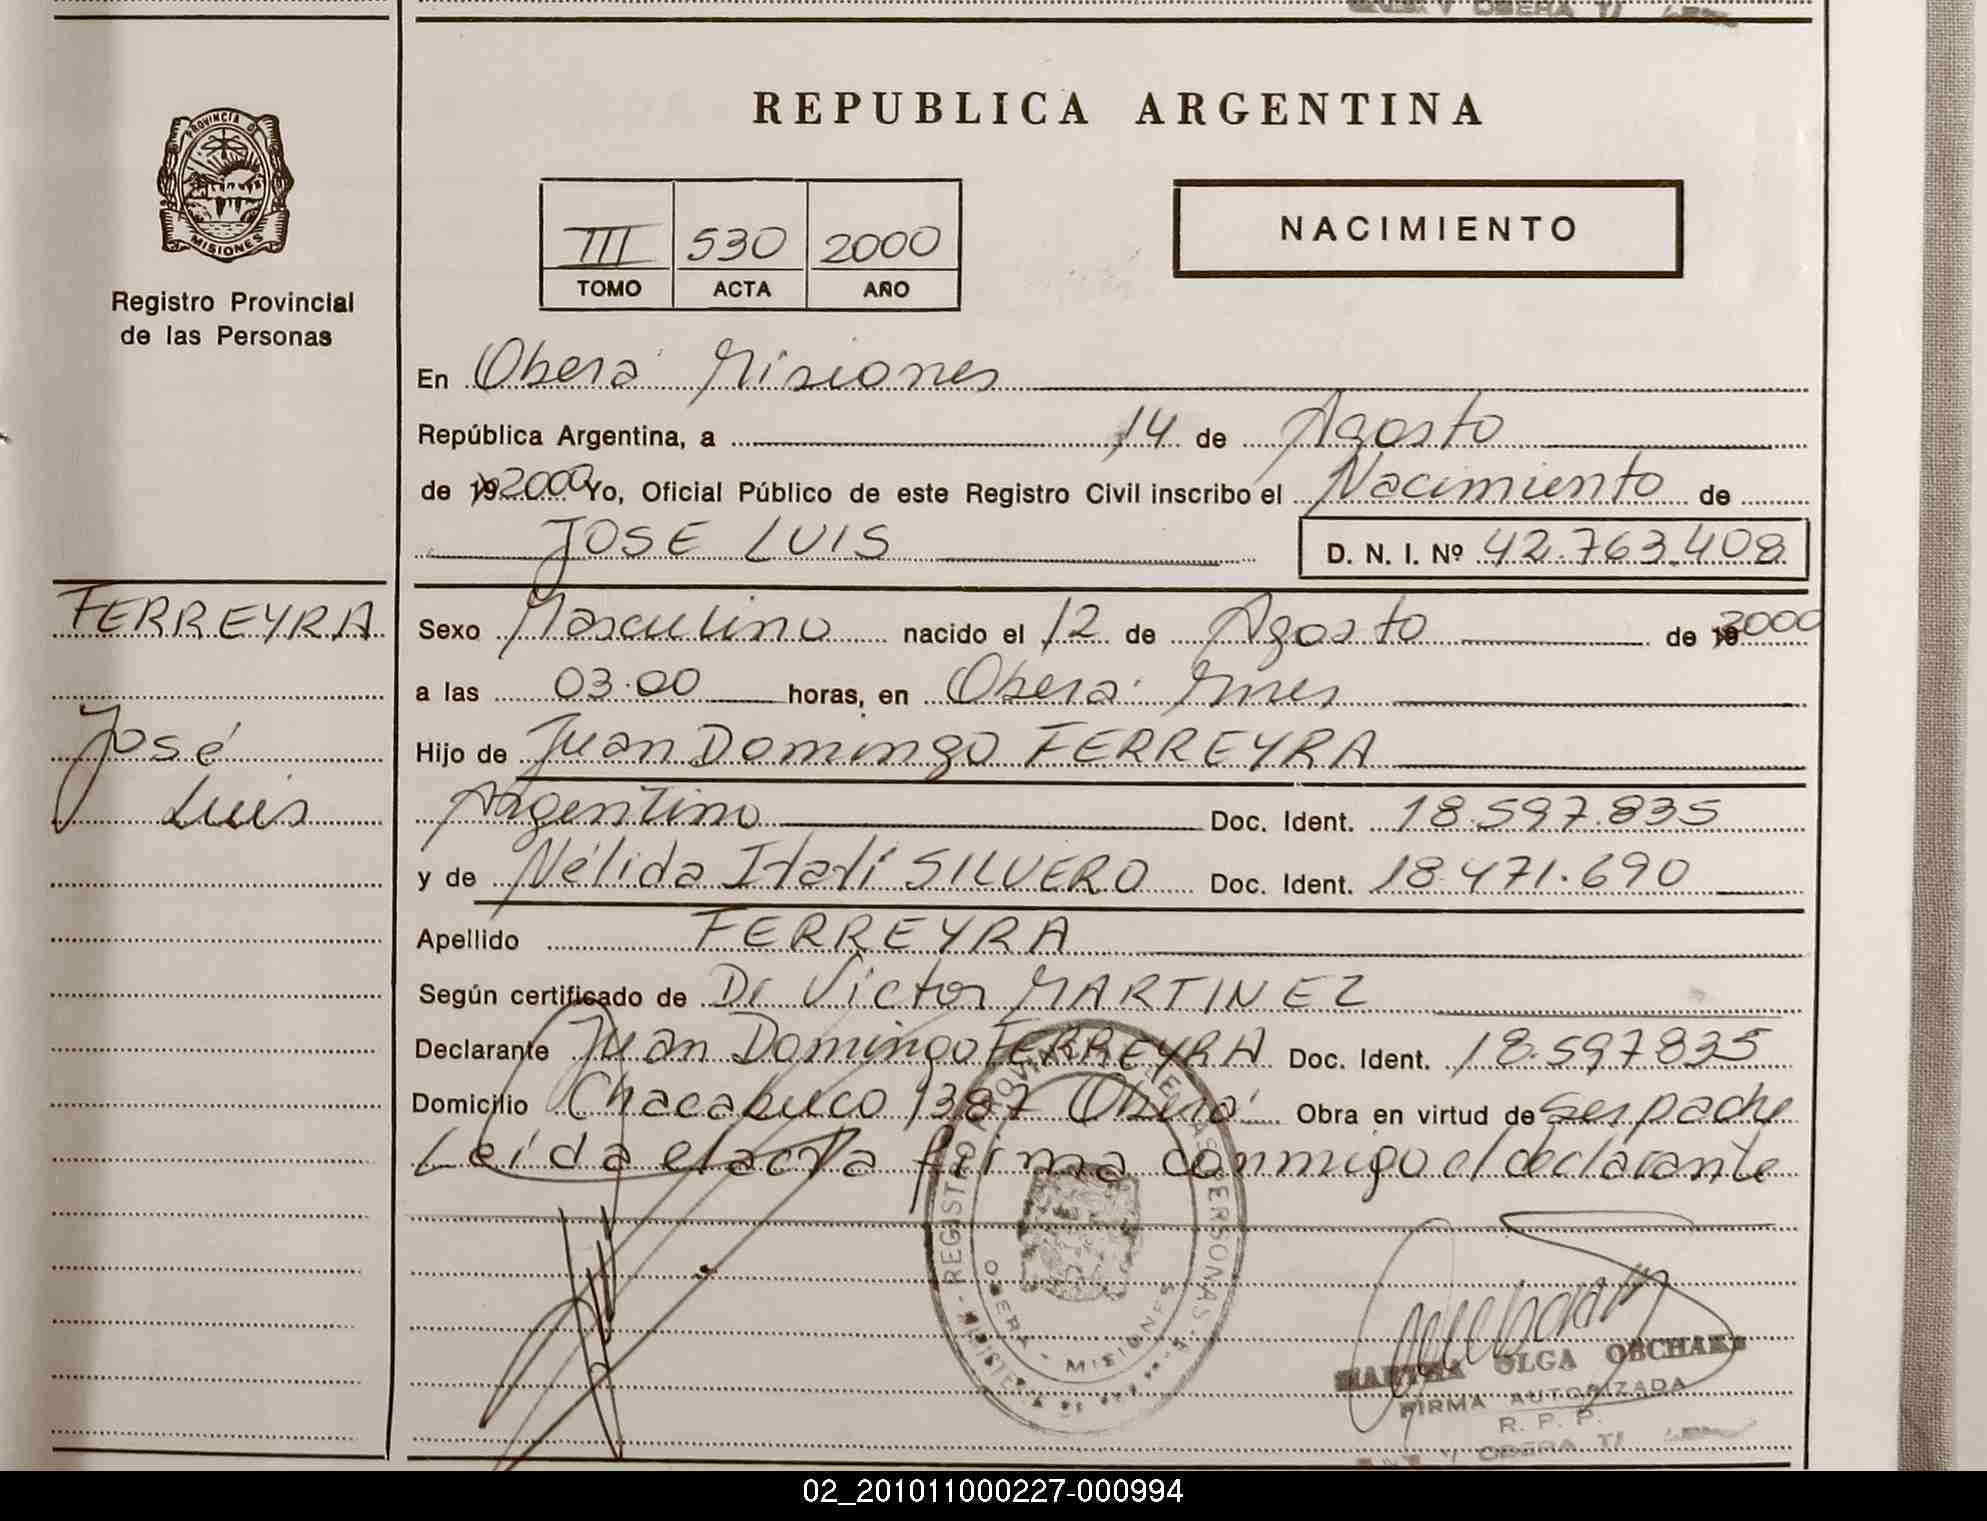 REPUBLICA ARGENTINA
PROVINCIA DE
MISIONES
Registro Provincial
de las Personas
III 530 2000
TOMO ACTA AÑO
NACIMIENTO
En Oberá Misiones
República Argentina, a 14 de Agosto
de 19 2000 Yo, Oficial Público de este Registro Civil inscribo el Nacimiento de
JOSE LUIS D. N. I. Nº 42.763.408
FERREYRA
José
Luis
Sexo Masculino nacido el 12 de Agosto de 19 2000
a las 03.00 horas, en Oberá Mnes
Hijo de Juan Domingo FERREYRA
Argentino Doc. Ident. 18.597.835
y de Nélida Itatí SILVERO Doc. Ident. 18.471.690
Apellido FERREYRA
Según certificado de Dr Victor MARTINEZ
Declarante Juan Domingo FERREYRA Doc. Ident. 18.597835
Domicilio Chacabuco 1387 Oberá Obra en virtud de
Leída el acta firma conmigo el declarante
REGISTRO PERSONAS
OBERA - MISIONES
MARTHA OLGA
FIRMA AUTORIZADA
R. P. P.
OBERA
02_201011000227-000994